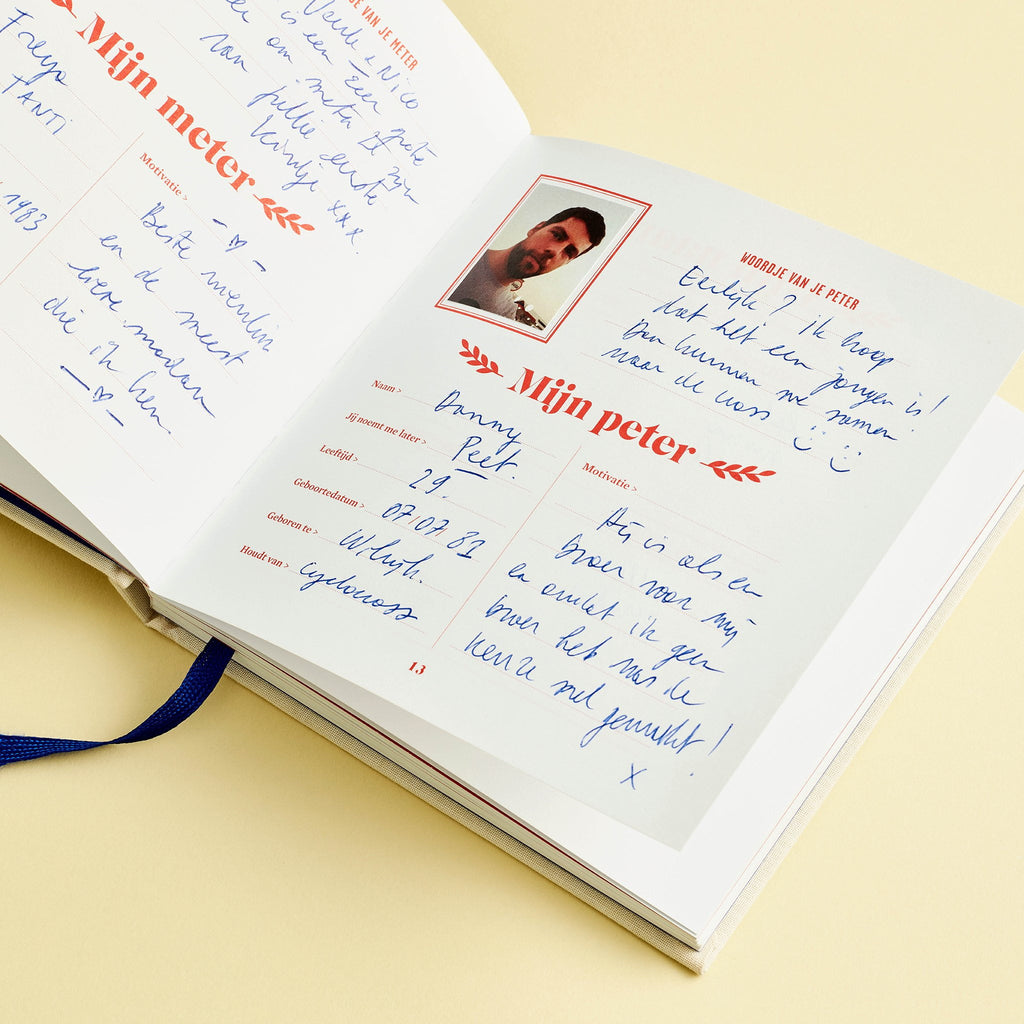 VAN JE METER
Veerle & Nico
is een Eer
om meter te
van jullie eerste
kindje xxx.
Mijn meter
Freya
TANTI
1983
Motivatie >
Beste vriendin
en de meest
lieve madam
die ik ken.
WOORDJE VAN JE PETER
Eerlijk? ik hoop
dat het een jongen is!
Dan kunnen we samen
naar de cross
Mijn peter
Naam > Danny
Jij noemt me later > Peet.
Leeftijd > 29.
Geboortedatum > 07/07/81
Geboren te > Wilrijk.
Houdt van > cyclocross
13
Motivatie >
Hij is als een
broer voor mij
en omdat ik geen
broer heb was de
keuze snel gemaakt!
x